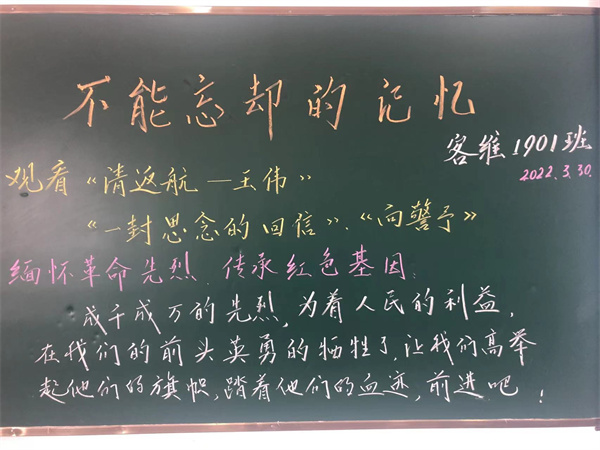 不能忘却的记忆
客维1901班
2022.3.30.
观看“清返航—王伟”
“一封思念的回信”、“向警予”
缅怀革命先烈.传承红色基因.
成千成万的先烈,为着人民的利益,
在我们的前头英勇的牺牲了,让我们高举
起他们的旗帜,踏着他们的血迹,前进吧!